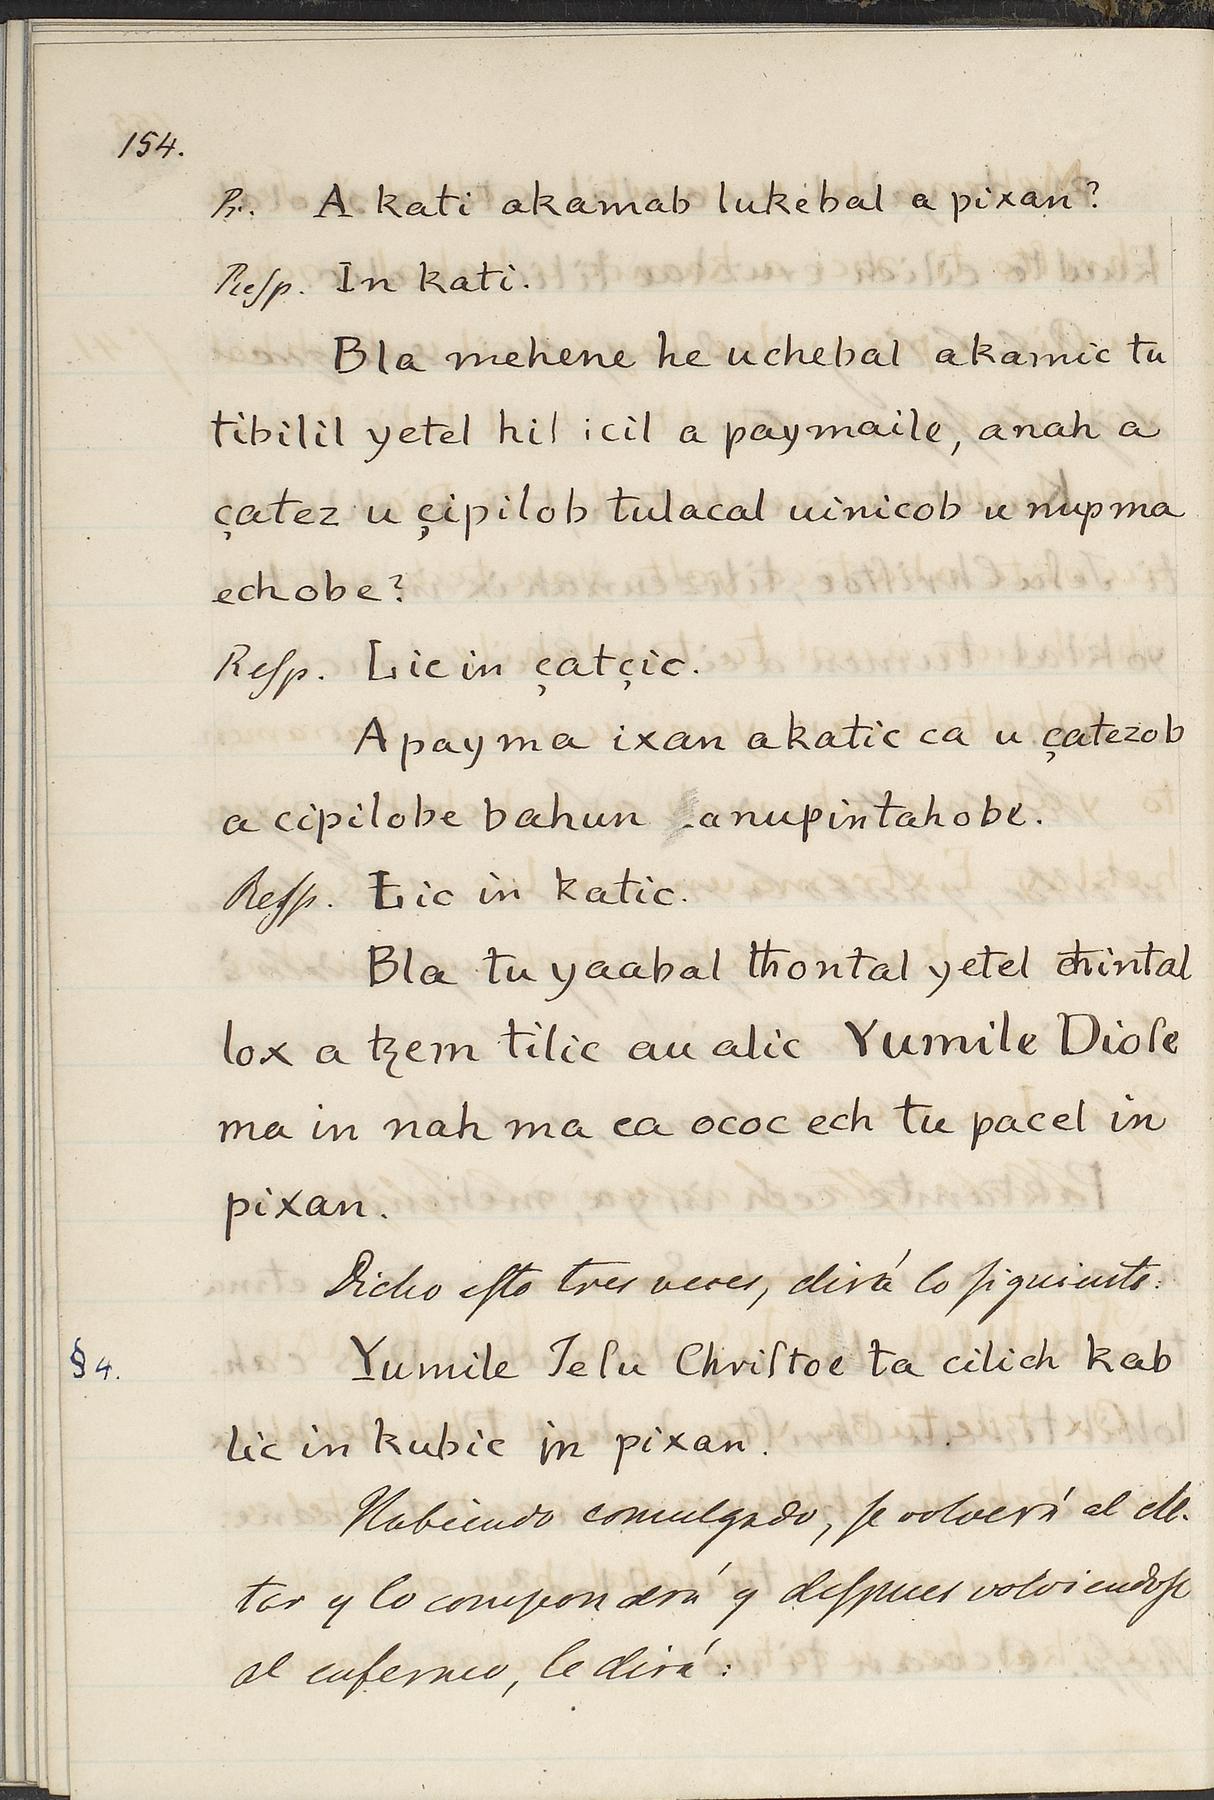 154.
Pr. A kati akamab lukebal a pixan?
Resp. In kati.
Bla mehene he uchebal akamic tu
tibilil yetel hil icil a paymaile, anah a
çatez u çipilob tulacal uinicob u nupma
echobe?
Resp. Lic in çatçic.
A payma ixan akatic ca u çatezob
a cipilobe bahun a nupintahobe.
Resp. Lic in katic.
Bla tu yaabal thontal yetel chintal
lox a tzem tilic au alic Yumile Diose
ma in nah ma ca ococ ech tu pacel in
pixan.
Dicho esto tres veces, dirá lo siguiente:
§ 4. Yumile Jesu Christoe ta cilich kab
lic in kubic in pixan.
Habiendo comulgado, se volverá al al-
tar y lo compondrá y despues volviendose
al enfermo, le dirá: